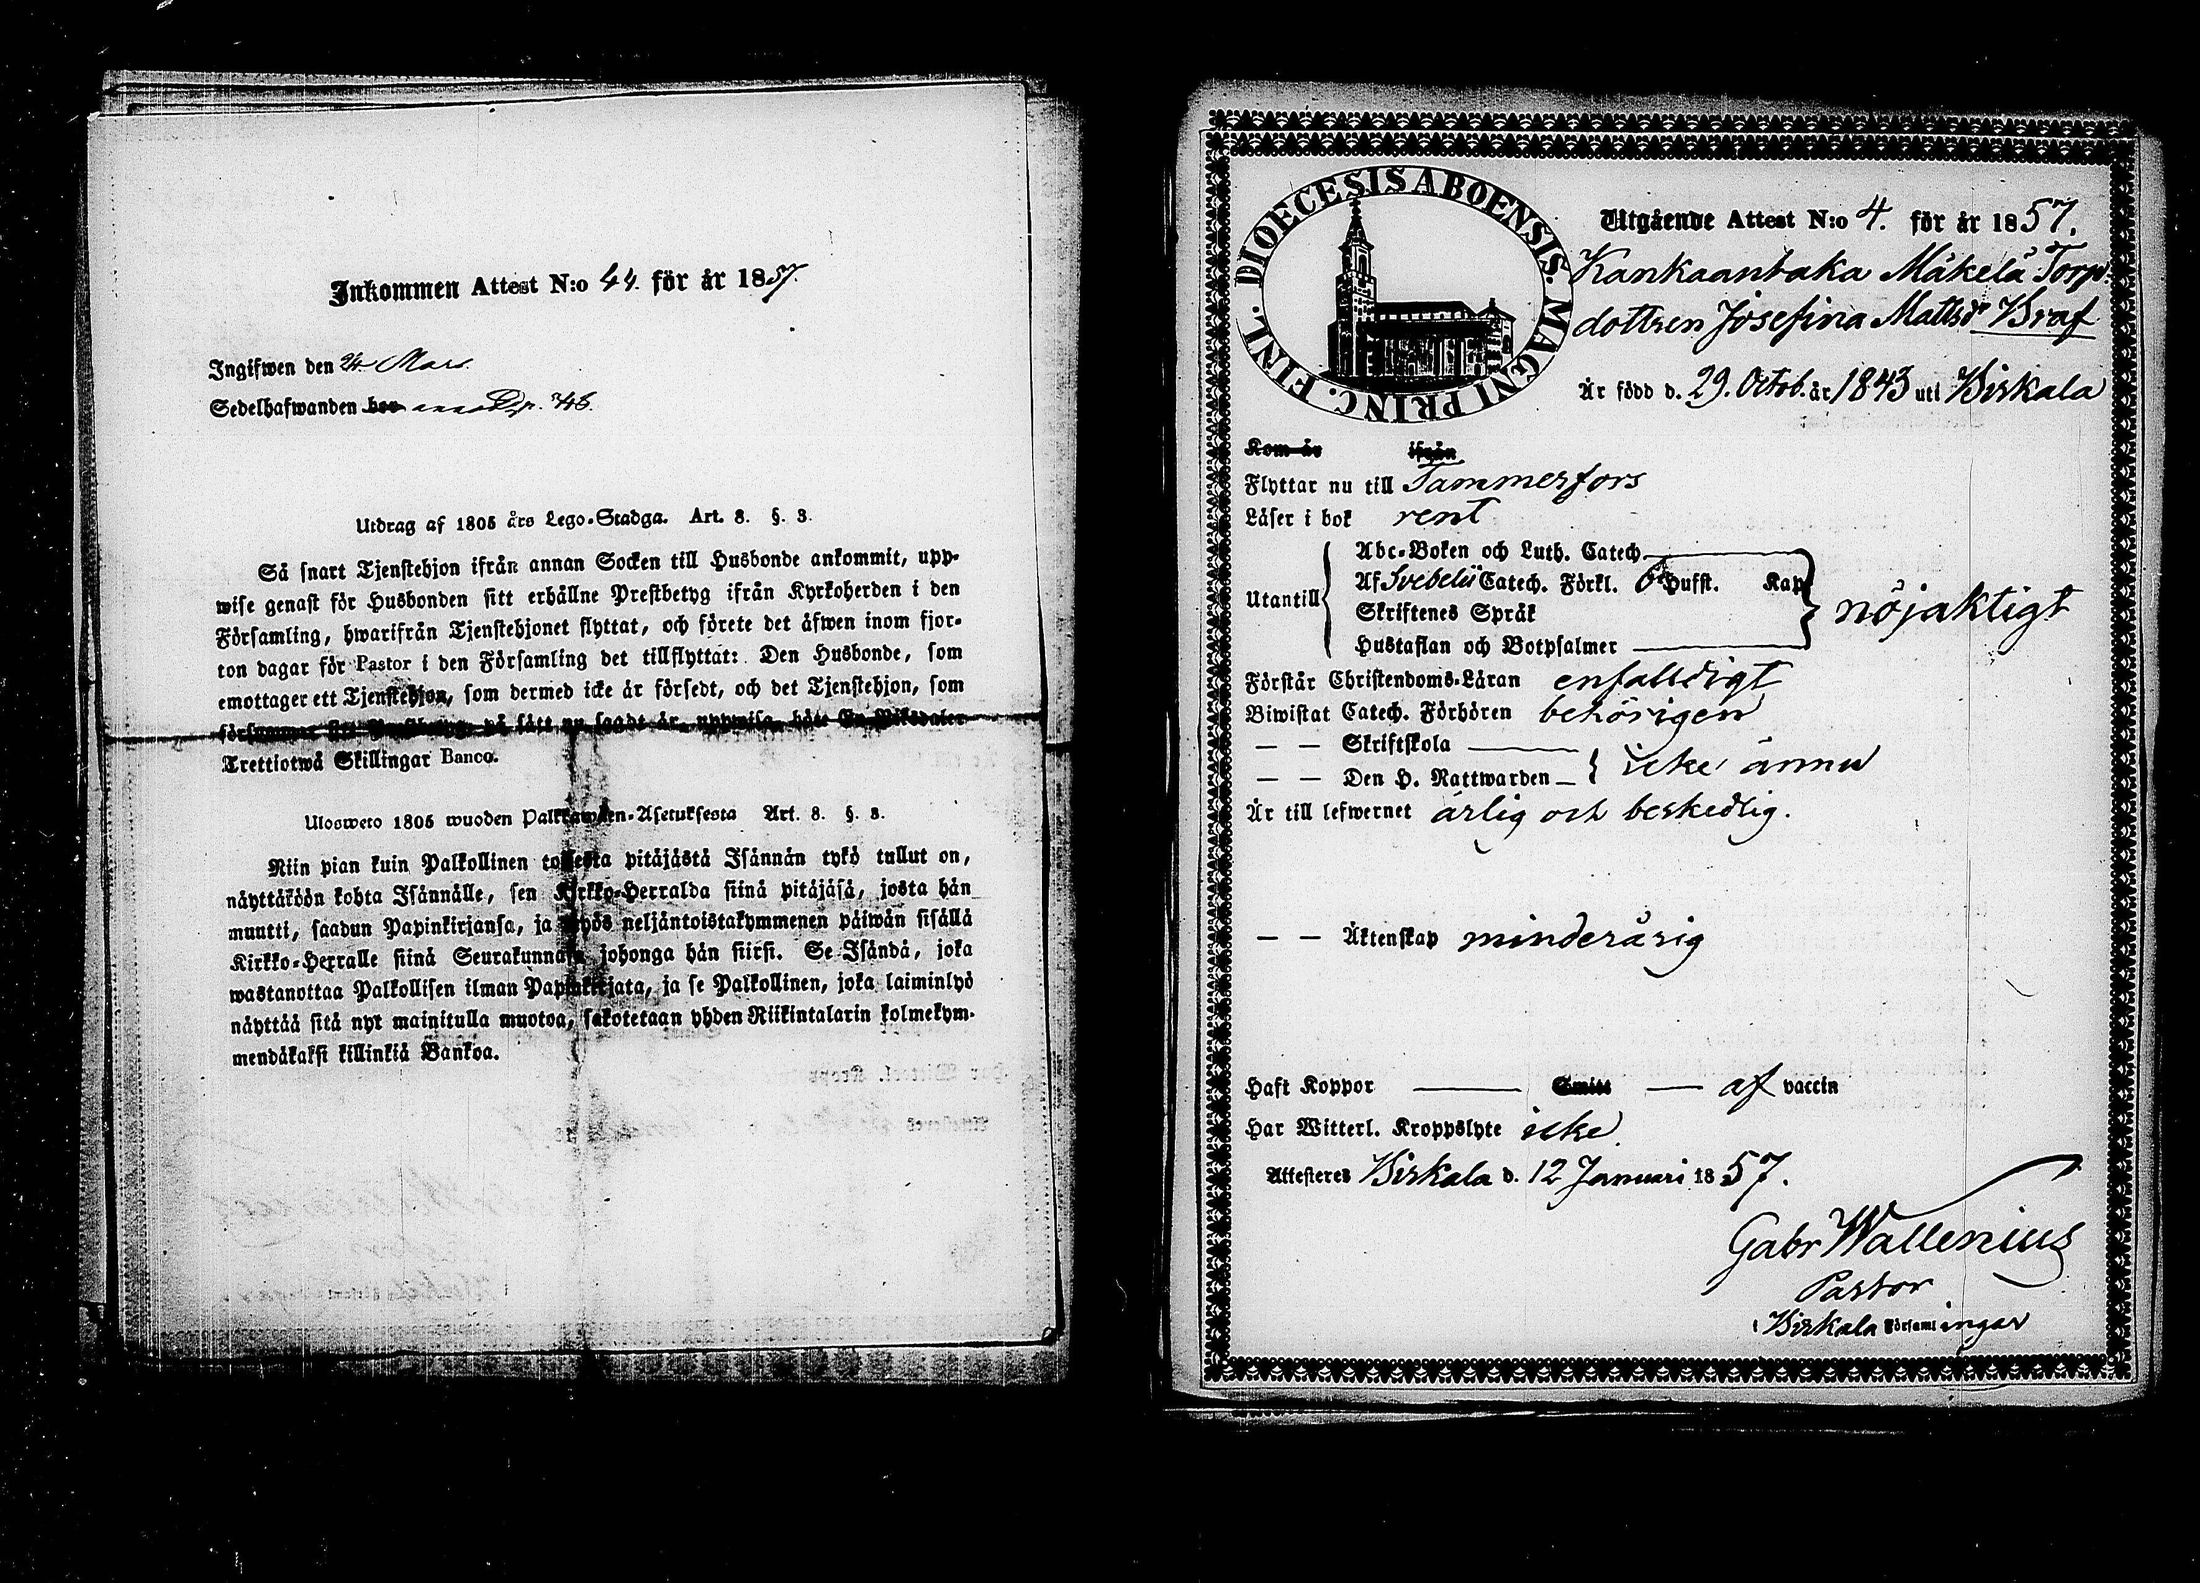 Inkommen Attest N:o 44. för år 1857.
Ingifwen den 24 Mars.
Sedelhafwanden bor
Utdrag af 1805 års Lego-Stadga. Art. 8. §. 3.
Så snart Tjenstehjon ifrån annan Socken till Husbonde ankommit, upp-
wise genast för Husbonden sitt erhållne Prestbetyg ifrån Kyrkoherden i den
Församling, hwarifrån Tjenstehjonet flyttat, och förete det äfwen inom fjor-
ton dagar för Pastor i den Församling det tillflyttat: Den Husbonde, som
emottager ett Tjenstehjon, som dermed icke är försedt, och det Tjenstehjon, som
försummar sitt Prestbetyg, på sätt nu sagdt är, uppwisa, böte En Riksdaler
Trettiotwå Skillingar Banco.
Ulosweto 1805 wuoden Palkkawäen-Asetuksesta Art. 8. §. 3.
Niin pian kuin Palkollinen toisesta pitäjästä Isännän tykö tullut on,
näyttäköön kohta Isännälle, sen Kirkko-Herralda siinä pitäjäsä, josta hän
muutti, saadun Papinkirjansa, ja myös neljäntoistakymmenen päiwän sisällä
Kirkko-Herralle siinä Seurakunnasa johonga hän siirsi. Se Isändä, joka
wastanottaa Palkollisen ilman Papinkirjata, ja se Palkollinen, joka laiminlyö
näyttää sitä nyt mainitulla muotoa, sakotetaan yhden Riikintalarin kolmekym-
mendäkaksi killinkiä Bankoa.
DIOECESIS ABOENSIS. MAGNI PRINC. FINL.
Utgående Attest N:o 4. för år 1857.
Kankaantaka Mäkelä Torp-
dottren Josefina Mattsdr Braf
Är född d. 29. Octob. år 1843 uti Birkala
Kom år ifrån
Flyttar nu till Tammerfors
Läser i bok rent
Abc-Boken och Luth. Catech.
Utantill Af Svebelii Catech. Förkl. 6 Hufst. Kap. nöjaktigt
Skriftenes Språk
Hustaflan och Botpsalmer
Förstår Christendoms-Läran enfalldigt
Biwistat Catech. Förhören behörigen
— — Skriftskola
— — Den H. Nattwarden icke ännu
Är till lefwernet ärlig och beskedlig.
— — Äktenskap minderårig
Haft Koppor — Smitt — af vaccin
Har Witterl. Kroppslyte icke
Attesteres Birkala d. 12 Januari 1857.
Gabr Wallenius
Pastor
i Birkala Församlingar